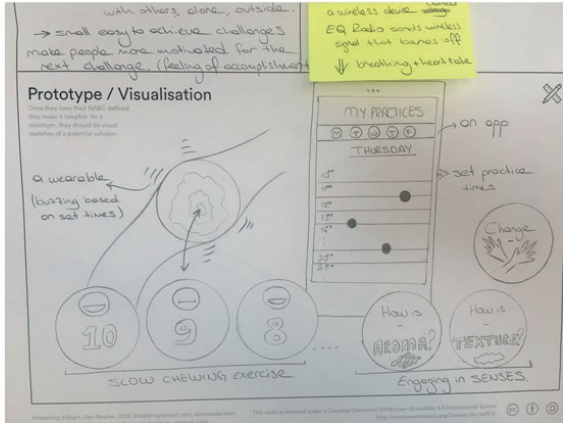 with others, alone, outside.
→ small easy to achieve challenges
make people more motivated for the
next challenge. (feeling of accomplishment
a wireless device
EQ Radio sends wireless
signal that bounces off
↓ breathing + heart rate
Prototype / Visualisation
Once they have their NABC defined
they make it tangible. As a
minimum, they should do visual
sketches of a potential solution.
a wearable
(buzzing based
on set times)
MY PRACTICES
M T W T F
THURSDAY
→ an app
→ set practice
times
Change
10
9
8
SLOW CHEWING exercise
How is
AROMA?
How is
TEXTURE?
Engaging in SENSES.